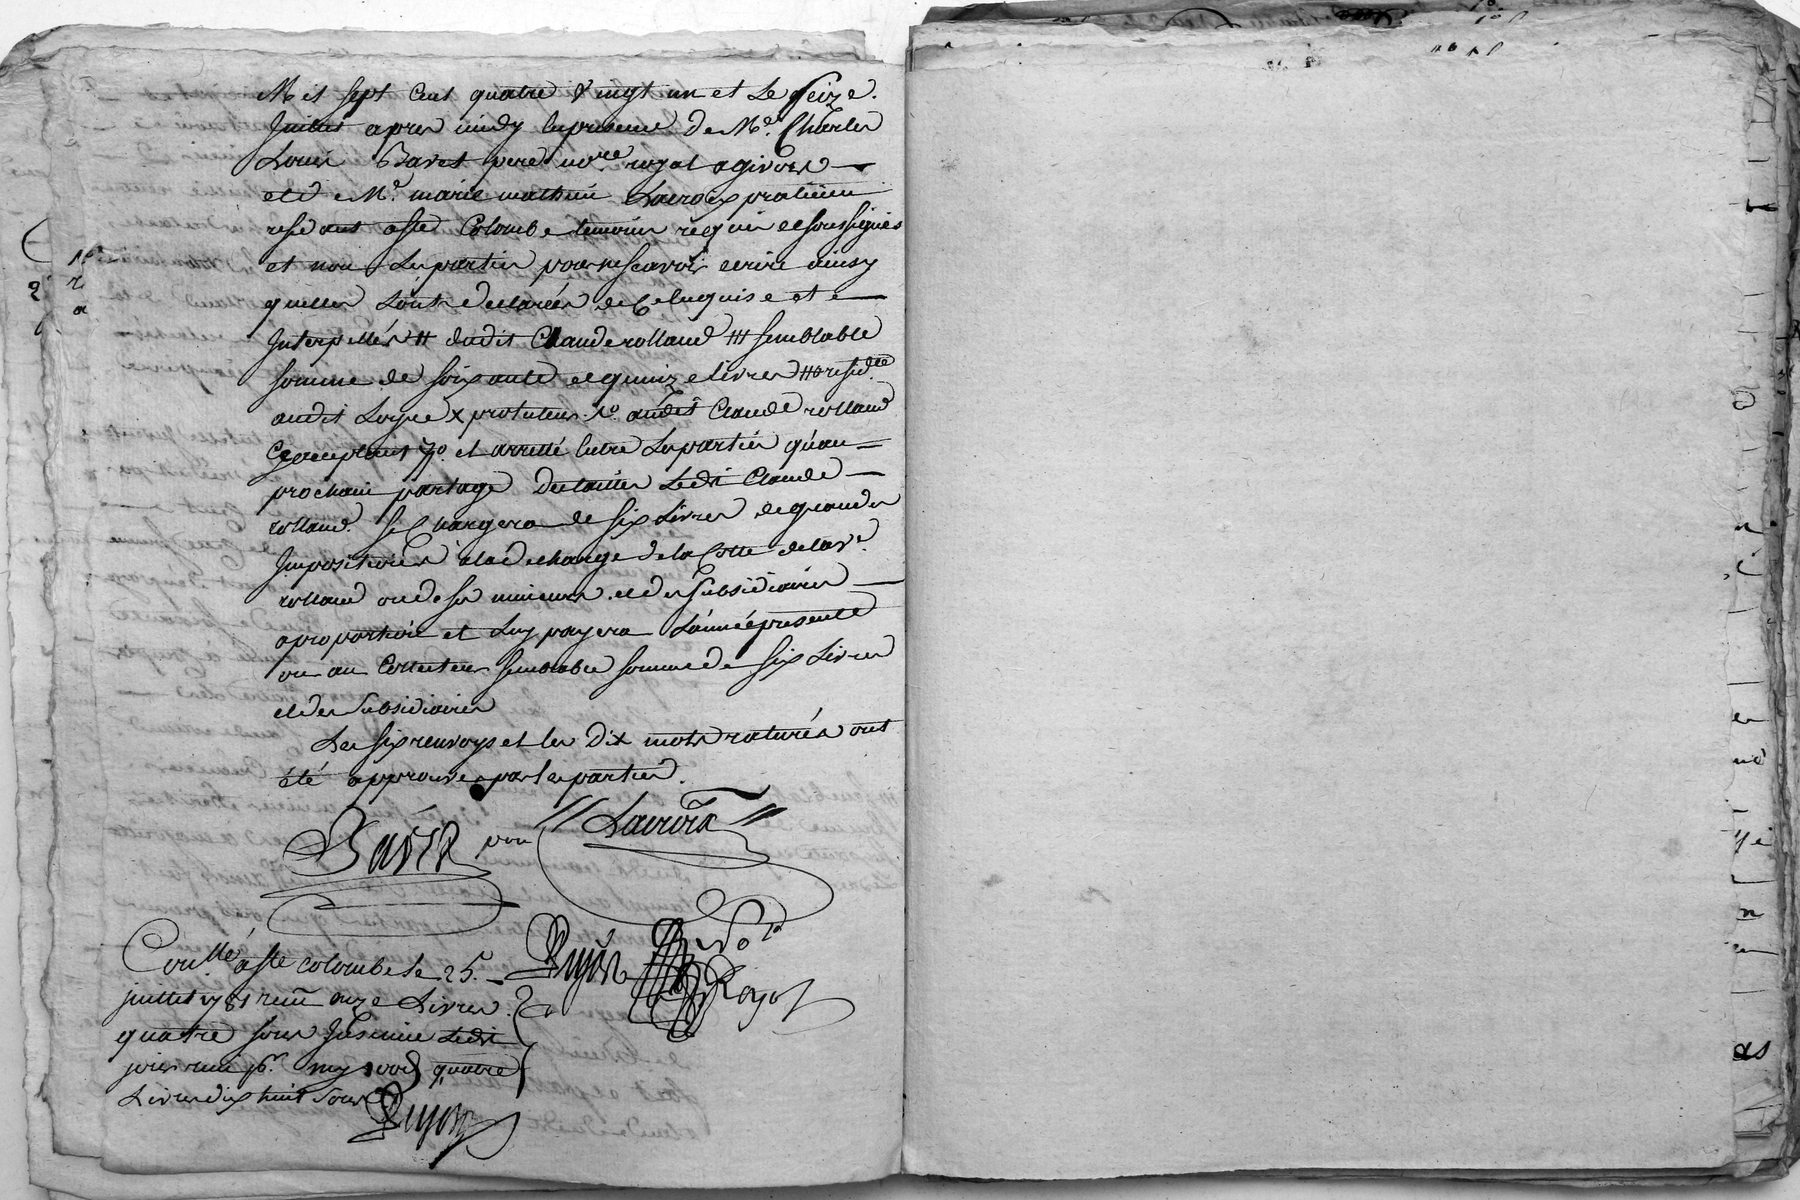 Mil sept cent quatre vingt un et le seize
Juillet apres midy en presence de Me. Charles
Louis Bavet pere no.re royal a givors
et de Me. marie mathieu Lacroix praticien
residant a Ste Colombe temoins requis et soussignés
et non les parties pour ne scavoir ecrire ainsy
quelles l'ont declarées de ce enquise et
Interpellés # dudit Claude rolland ### semblable
somme de soixante et quinze livres
audit Loyse x protuteur. 1o. audit Claude rolland
ce acceptant 7o. et arretté entre les parties qu'au
prochain partage des tailles Ledit Claude
rolland se chargera de six Livres de grandes
Impositions a la decharge de la Cotte de la Ve.
rolland ou de ses mineurs et des subsidiaires
a proportion et luy payera l'année presente
ou au Collecteur semblable somme de six Livres
et des subsidiaires
Les six renvoys et les dix mots raturés ont
été approuvé par les parties.
Bavet Lacroix
Con.llé a Ste colombe le 25.
juillet 1781 reçu onze Livres
quatre sous Insinué Ledit
jour reçu quatre
Livres dix huit sous